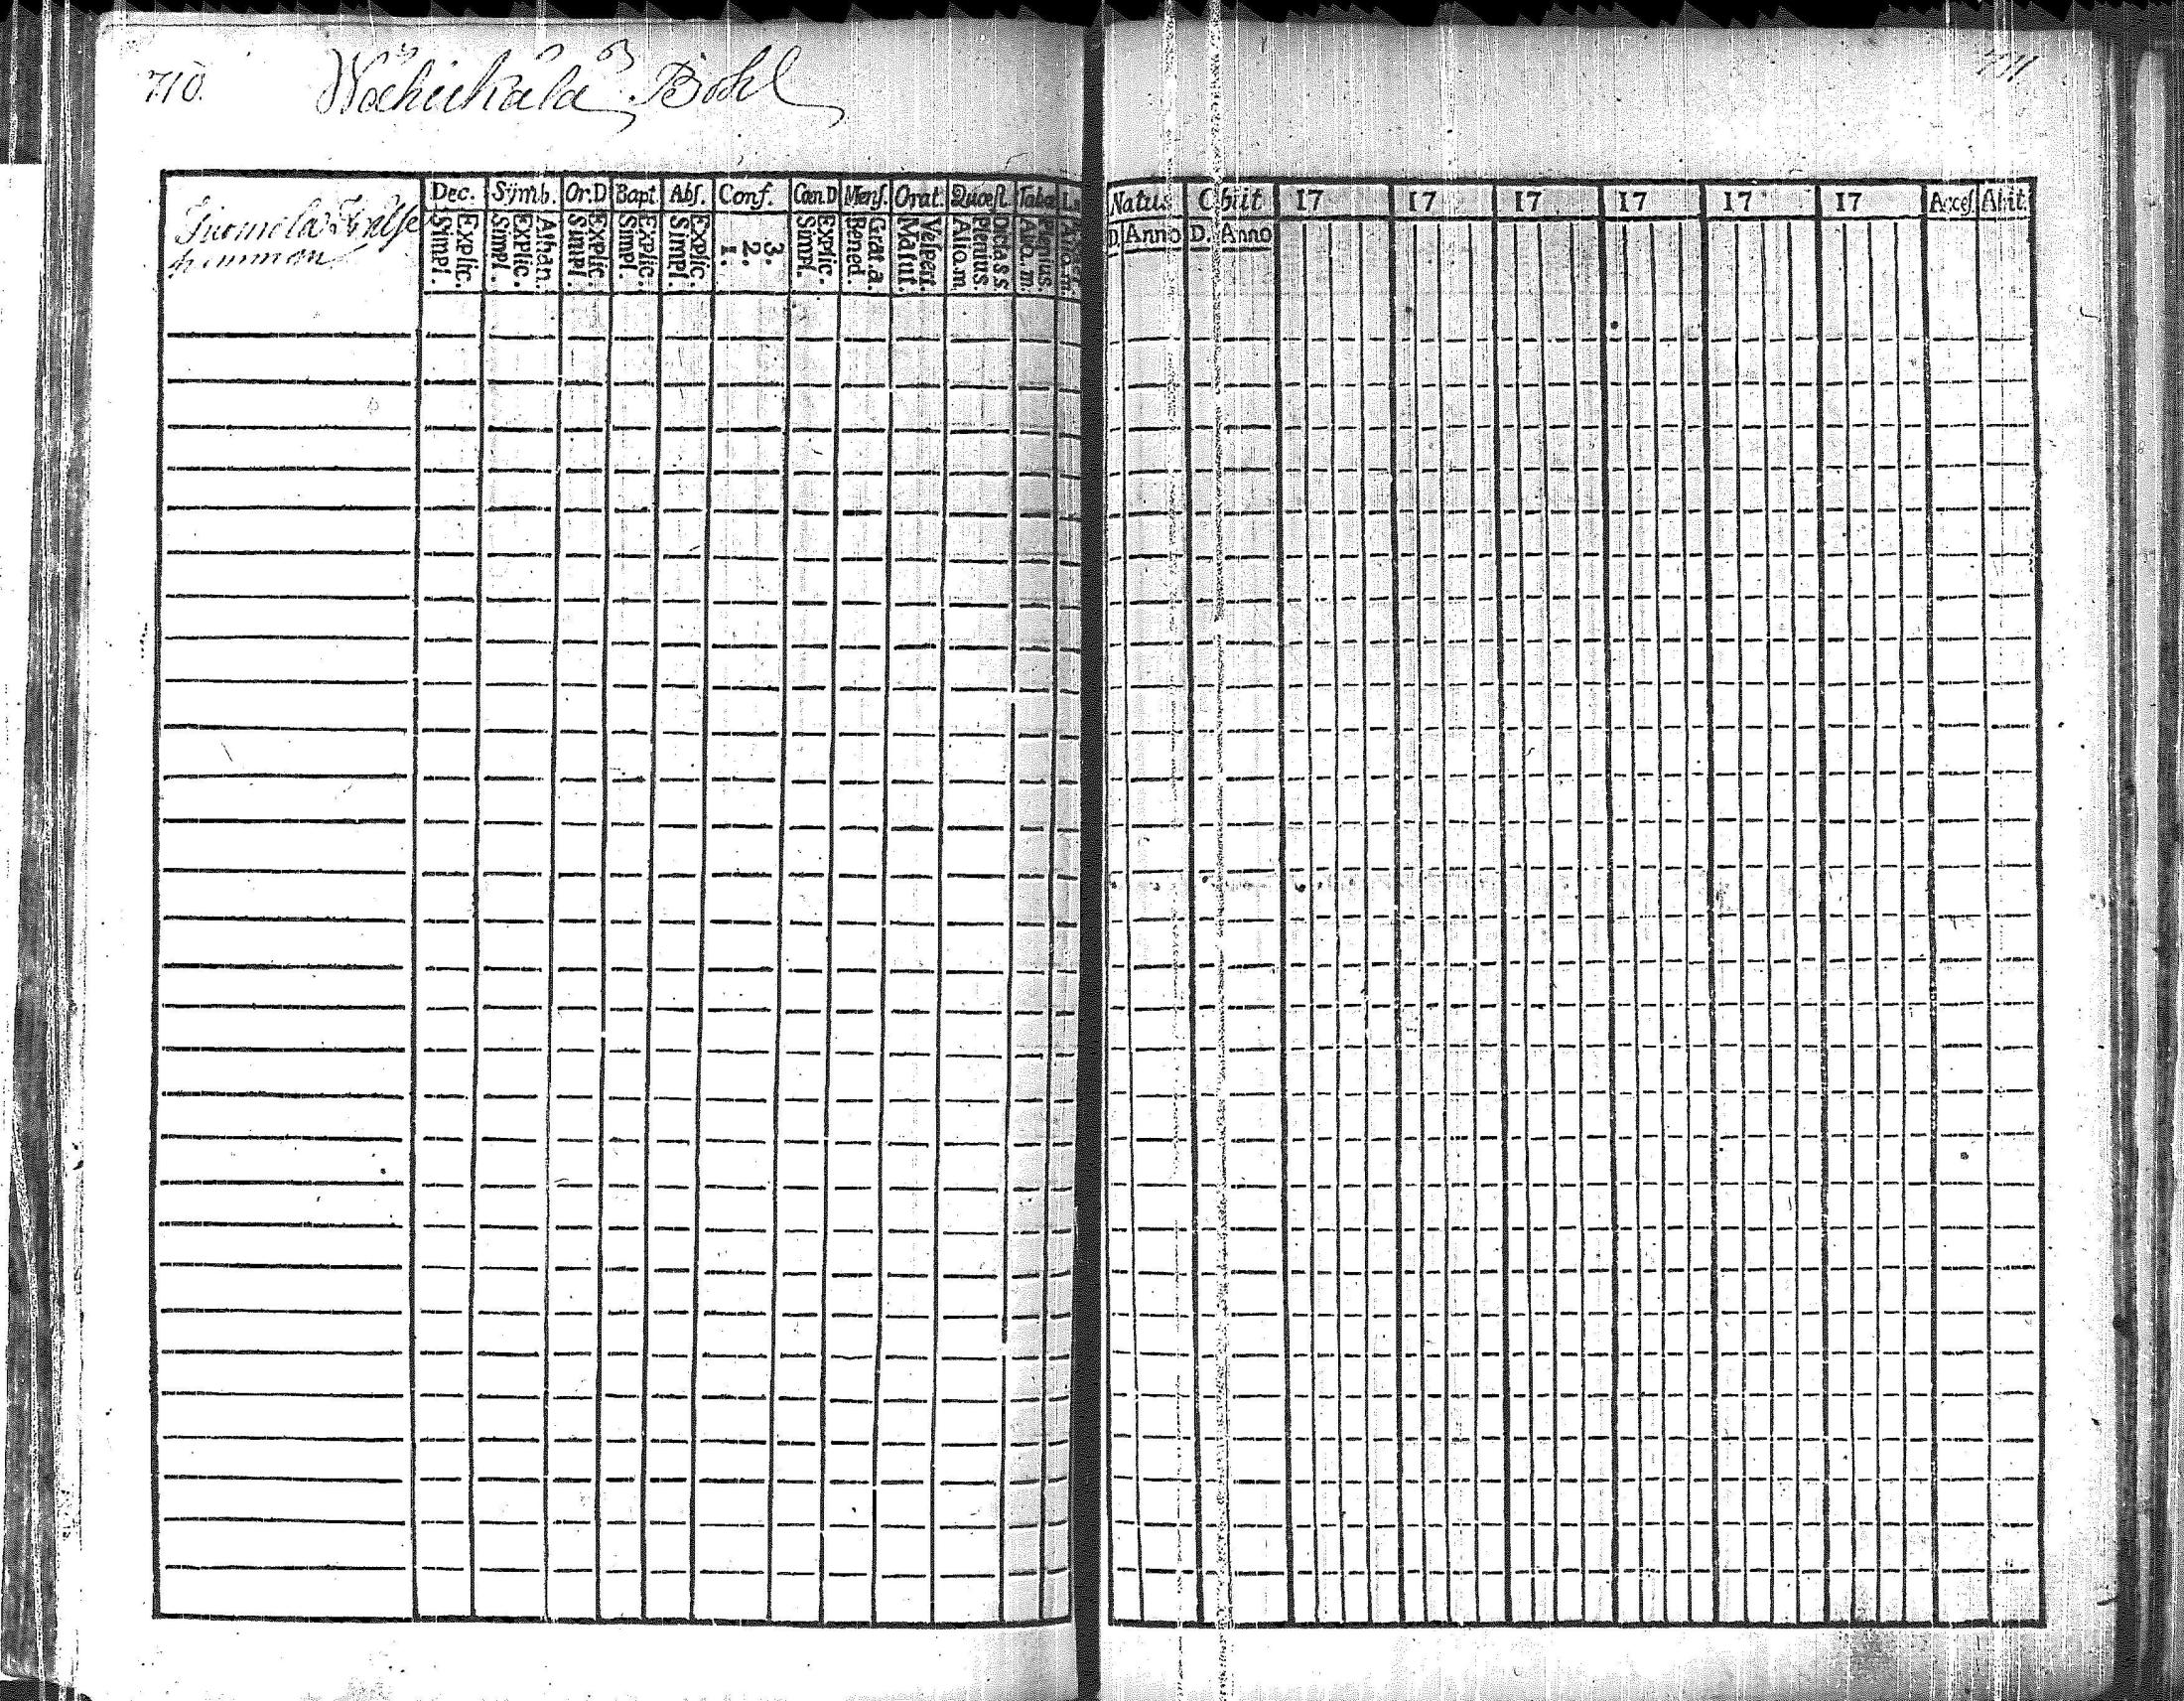 710. Wähikälä Bohl
711
Dec. Symb. Or.D Bapt. Abſ. Conf. Cœn.D Menſ. Orat. Quœſt. Tabœ
Explic. Simpl. Athan. Explic. Simpl. Explic. Simpl. Explic. Simpl. Explic. Simpl. 3. 2. 1. Explic. Simpl. Grat.a. Bened. Veſpert. Matut. Dictas s. Plenius. Alio.m. Plenius. Alio.m.
Natus Obiit 17 17 17 17 17 17 Acceſ. Abit
D. Anno D. Anno